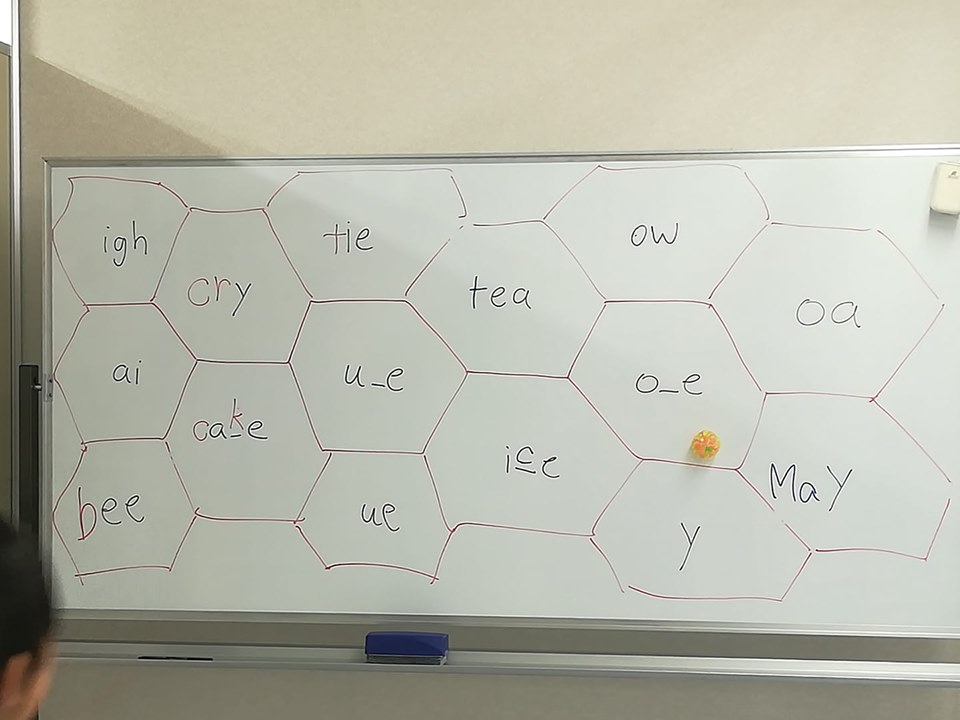 igh
cry
tie
tea
ow
oa
ai
cake
u_e
ice
o_e
May
bee
ue
y